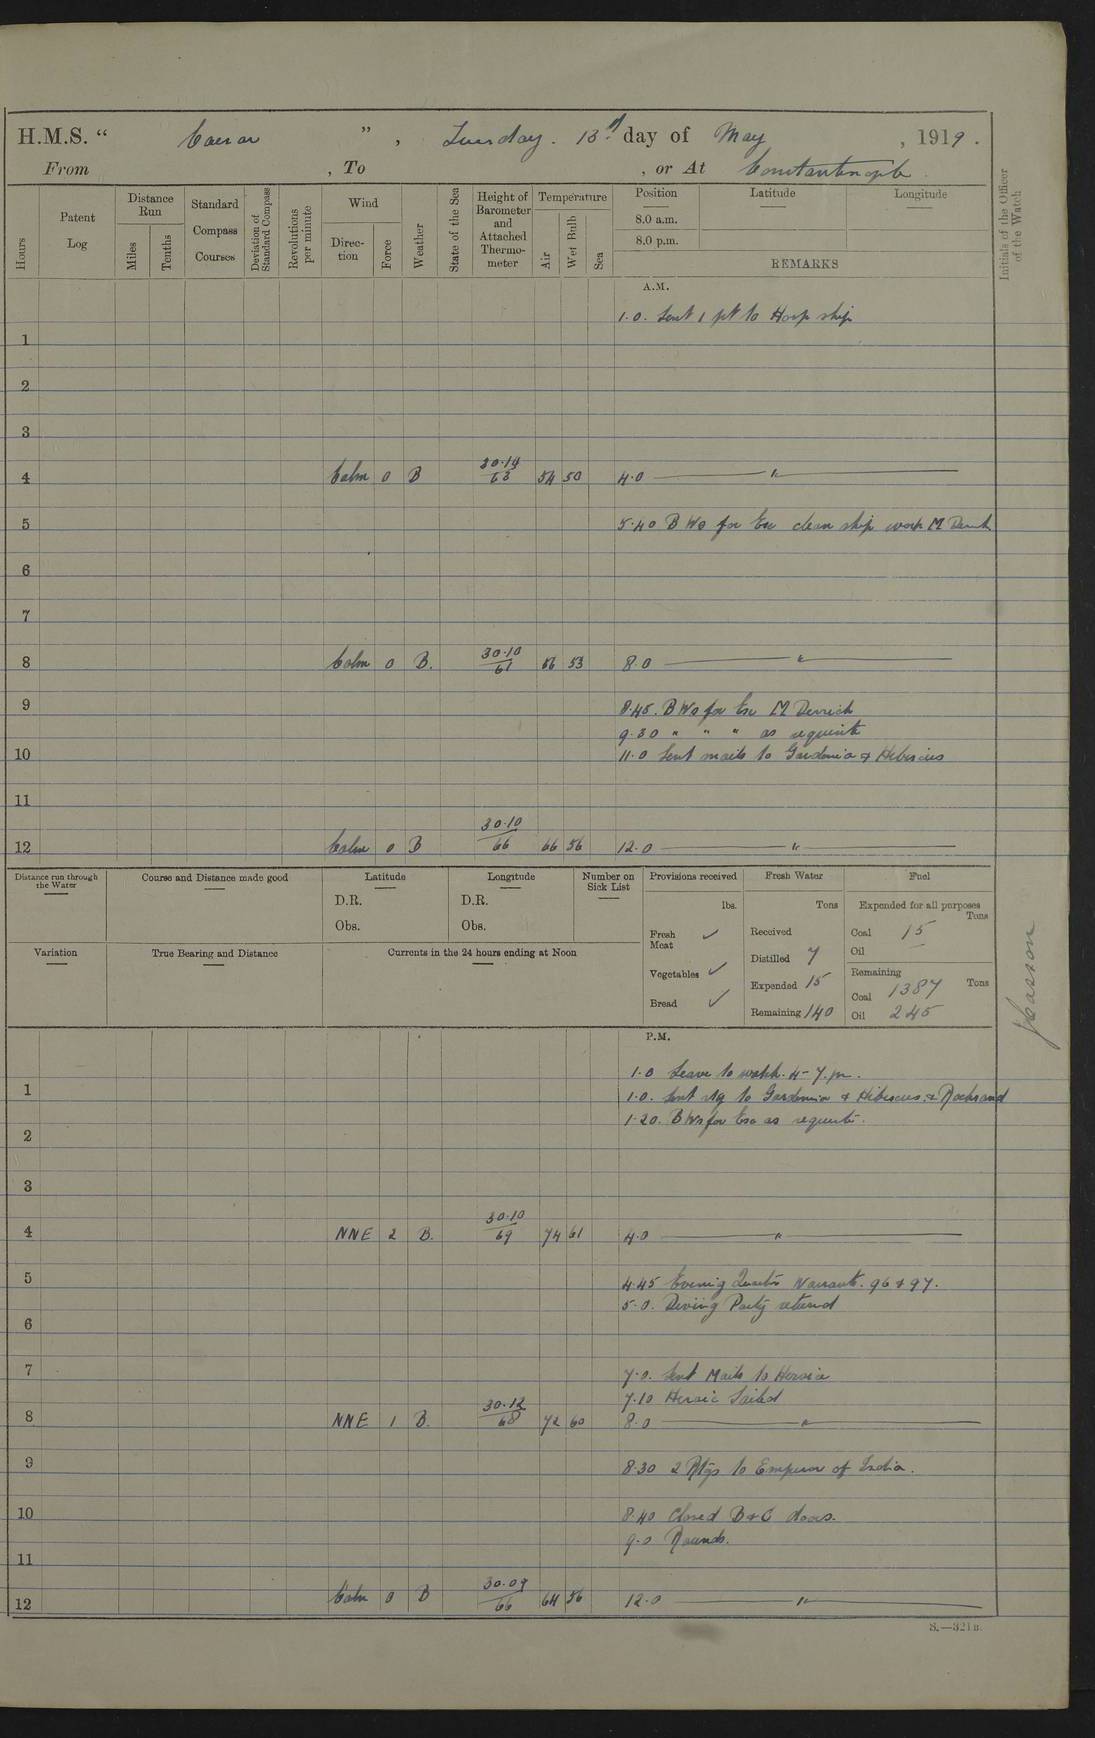 H.M.S. " Caesar ", Tuesday. 13th day of May, 1919.
From , To , or At Constantinople
Hours
Patent Log
Distance Run
Miles
Tenths
Standard Compass Courses
Deviation of Standard Compass
Revolutions per minute
Wind
Direction
Force
Weather
State of the Sea
Height of Barometer and Attached Thermometer
Temperature
Air
Wet Bulb
Sea
Position
Latitude
Longitude
8.0 a.m.
8.0 p.m.
REMARKS
Initials of the Officer of the Watch
A.M.
1.0. Sent 1 pt to Hosp ship
1
2
3
4 Calm 0 B 30.14 63 54 50 4.0 "
5 5.40 B Wo for Ex clean ship work M
6
7
8 Calm 0 B. 30.10 61 56 53 8.0 "
9 8.45. B Wo for Ex M Derrick
9.30 " " " as requisite
10 11.0 Sent mails to Gardenia & Hibiscus
11
12 Calm 0 B 30.10 66 66 56 12.0 "
Distance run through the Water
Course and Distance made good
Latitude
D.R.
Obs.
Longitude
D.R.
Obs.
Number on Sick List
Provisions received
lbs.
Fresh Meat ✓
Vegetables ✓
Bread ✓
Fresh Water
Tons
Received
Distilled 7
Expended 15
Remaining 140
Fuel
Expended for all purposes
Tons
Coal 15
Oil —
Remaining
Tons
Coal 1387
Oil 245
Variation
True Bearing and Distance
Currents in the 24 hours ending at Noon
P.M.
1.0 Leave to watch. 4-7.pm.
1 1.0. Sent to Gardenia & Hibiscus &
1.20. B Wo for Ex as requisite.
2
3
4 NNE 2 B. 30.10 69 74 61 4.0 "
5 4.45 Evening Quarters Warrants. 96 & 97.
5.0. Diving Party returned
6
7 7.0. Sent Mails to Heroic
7.10 Heroic Sailed
8 NNE 1 B. 30.12 68 72 60 8.0 "
9 8.30 2 Rtgs to Emperor of India.
10 8.40 Closed B & C doors.
9.0 Rounds.
11
12 Calm 0 B 30.09 66 64 56 12.0 "
S.—321B.